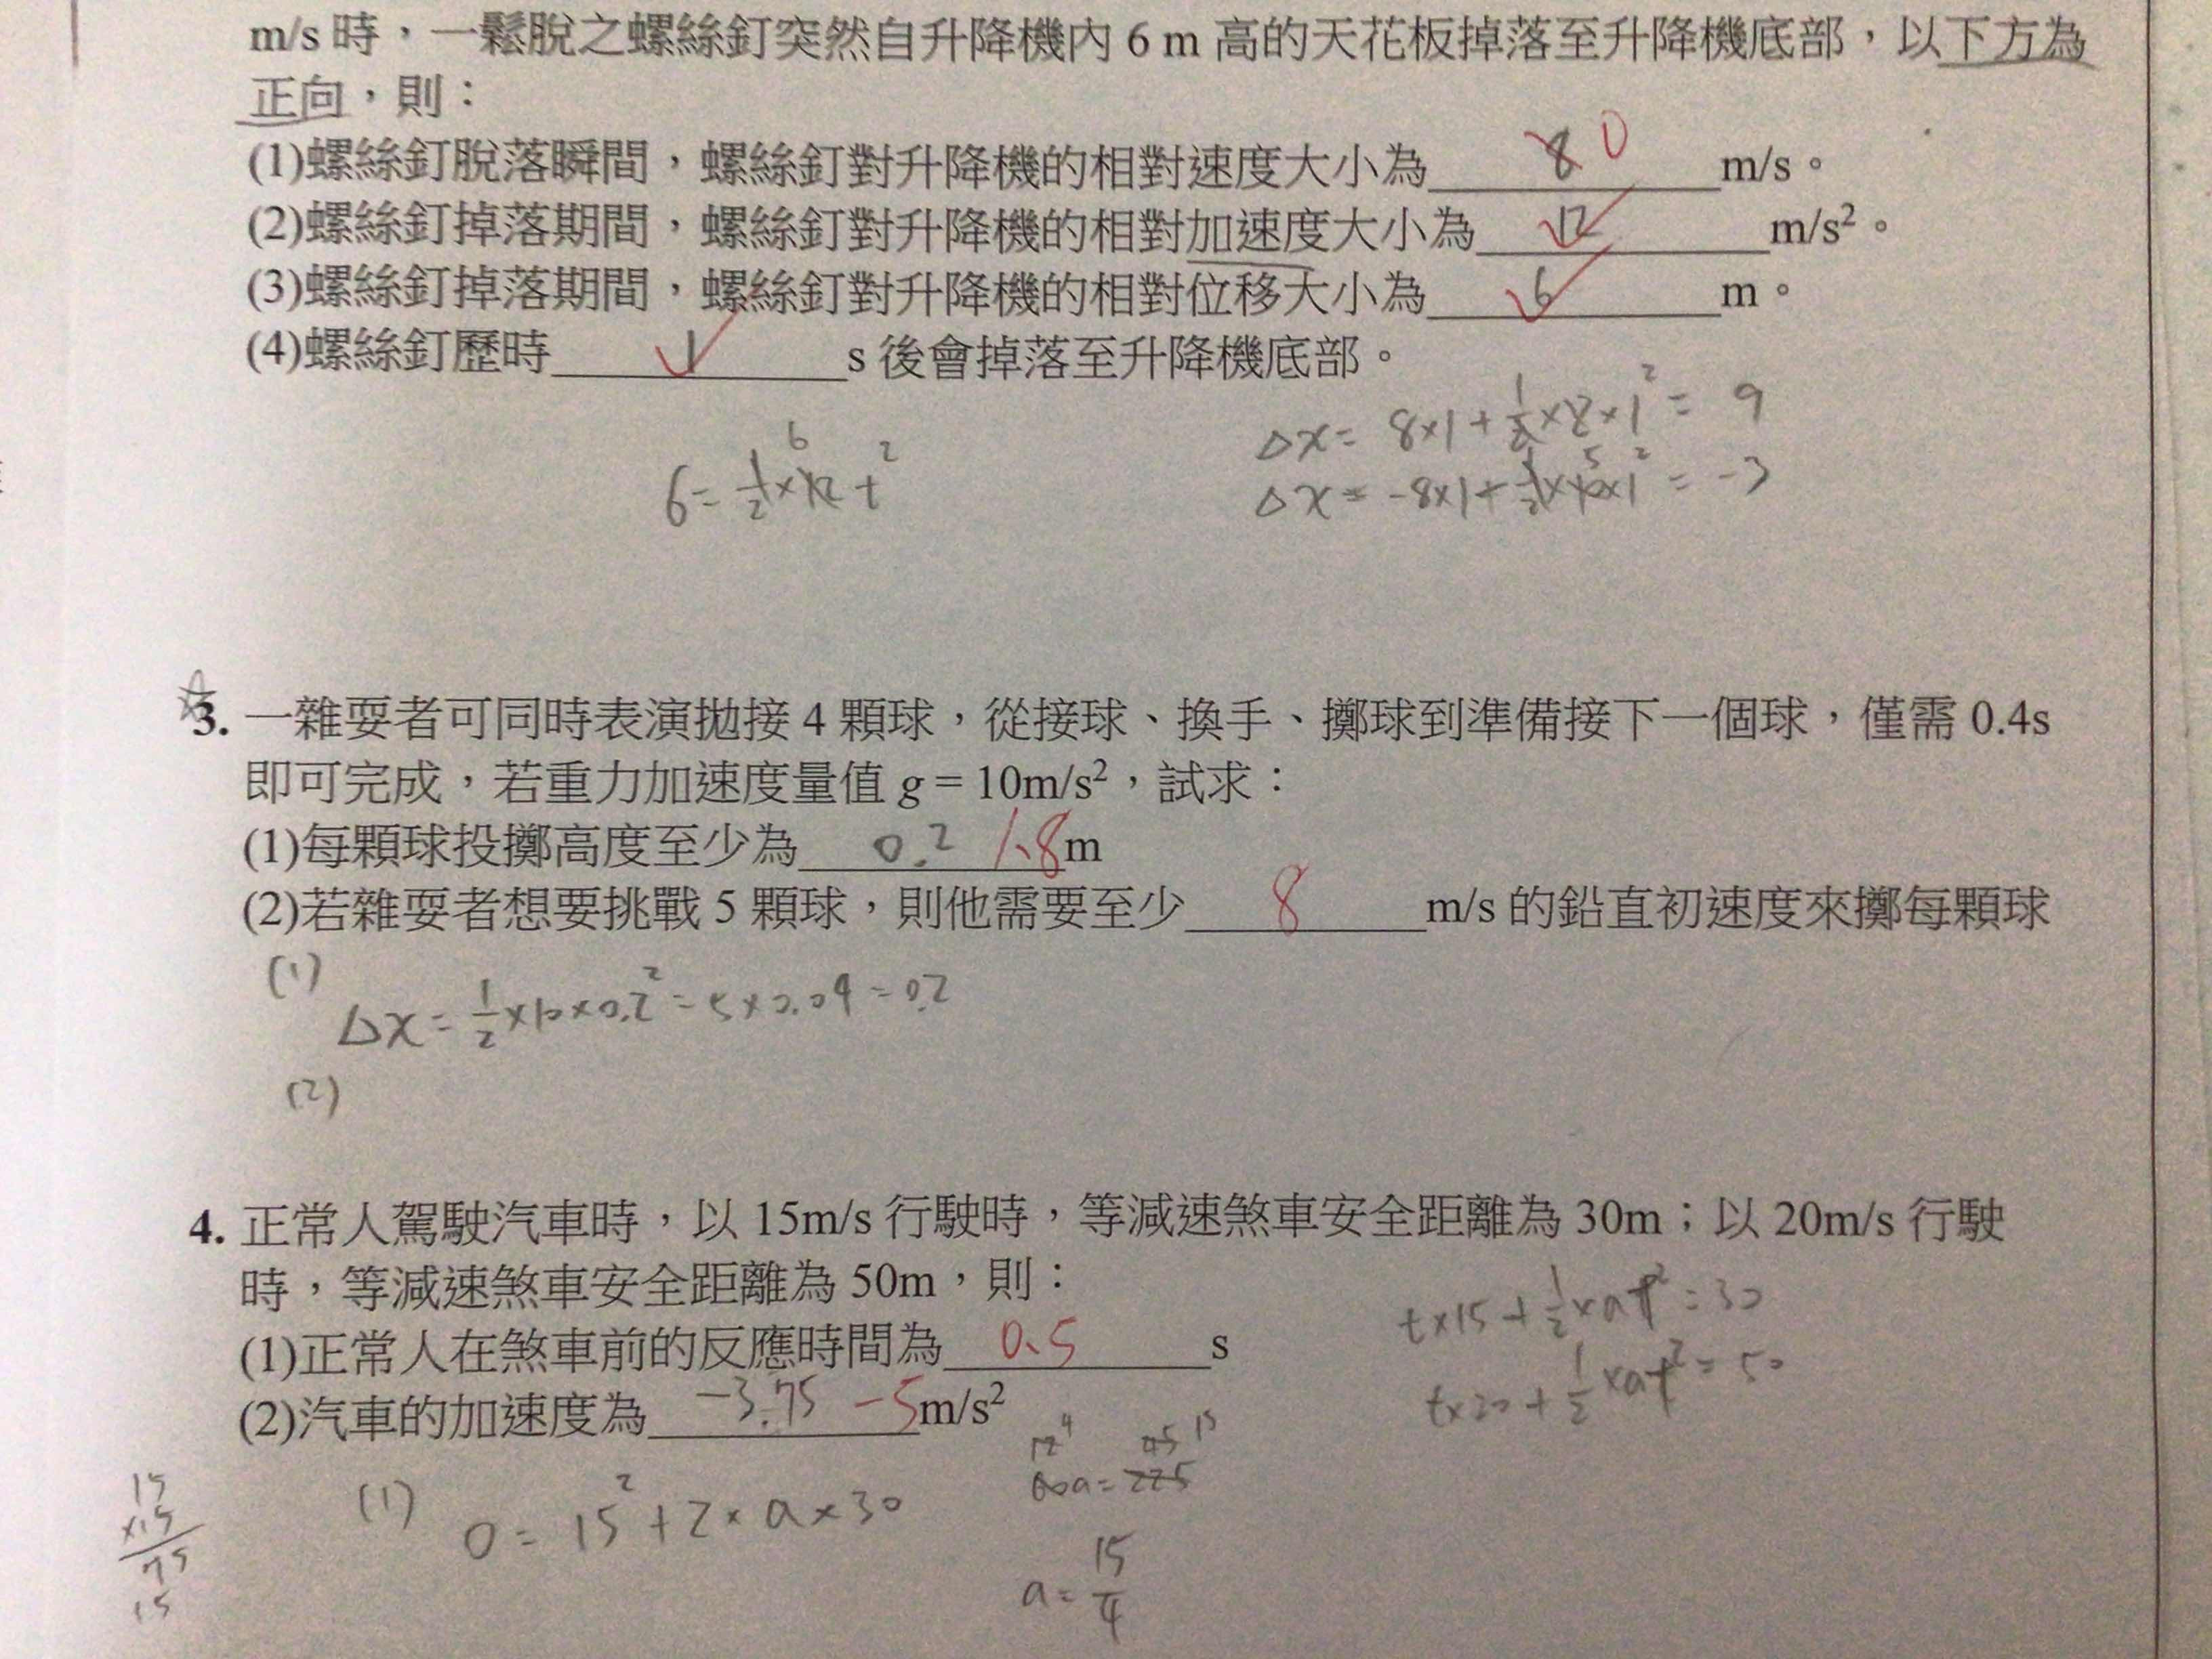 m/s 時，一鬆脫之螺絲釘突然自升降機內 6 m 高的天花板掉落至升降機底部，以下方為
正向，則：
(1)螺絲釘脫落瞬間，螺絲釘對升降機的相對速度大小為 8 0 m/s。
(2)螺絲釘掉落期間，螺絲釘對升降機的相對加速度大小為 12 m/s²。
(3)螺絲釘掉落期間，螺絲釘對升降機的相對位移大小為 6 m。
(4)螺絲釘歷時 1 s 後會掉落至升降機底部。
6
6=½×12 t²
Δx= 8×1+½×2×1² = 9
5
Δx= -8×1+½×10×1² = -3
3. 一雜耍者可同時表演拋接 4 顆球，從接球、換手、擲球到準備接下一個球，僅需 0.4s
即可完成，若重力加速度量值 g = 10m/s²，試求：
(1)每顆球投擲高度至少為 0.2 1.8 m
(2)若雜耍者想要挑戰 5 顆球，則他需要至少 8 m/s 的鉛直初速度來擲每顆球
(1)
Δx= ½×10×0.2² = 5×0.04 = 0.2
(2)
4. 正常人駕駛汽車時，以 15m/s 行駛時，等減速煞車安全距離為 30m；以 20m/s 行駛
時，等減速煞車安全距離為 50m，則：
t×15+½×at²=30
(1)正常人在煞車前的反應時間為 0.5 s
t×20+½×at²=50
(2)汽車的加速度為 -3.75 -5 m/s²
12 4 45 15
60a=225
(1) 0= 15²+2×a×30
a= 15/4
15
×15
75
15